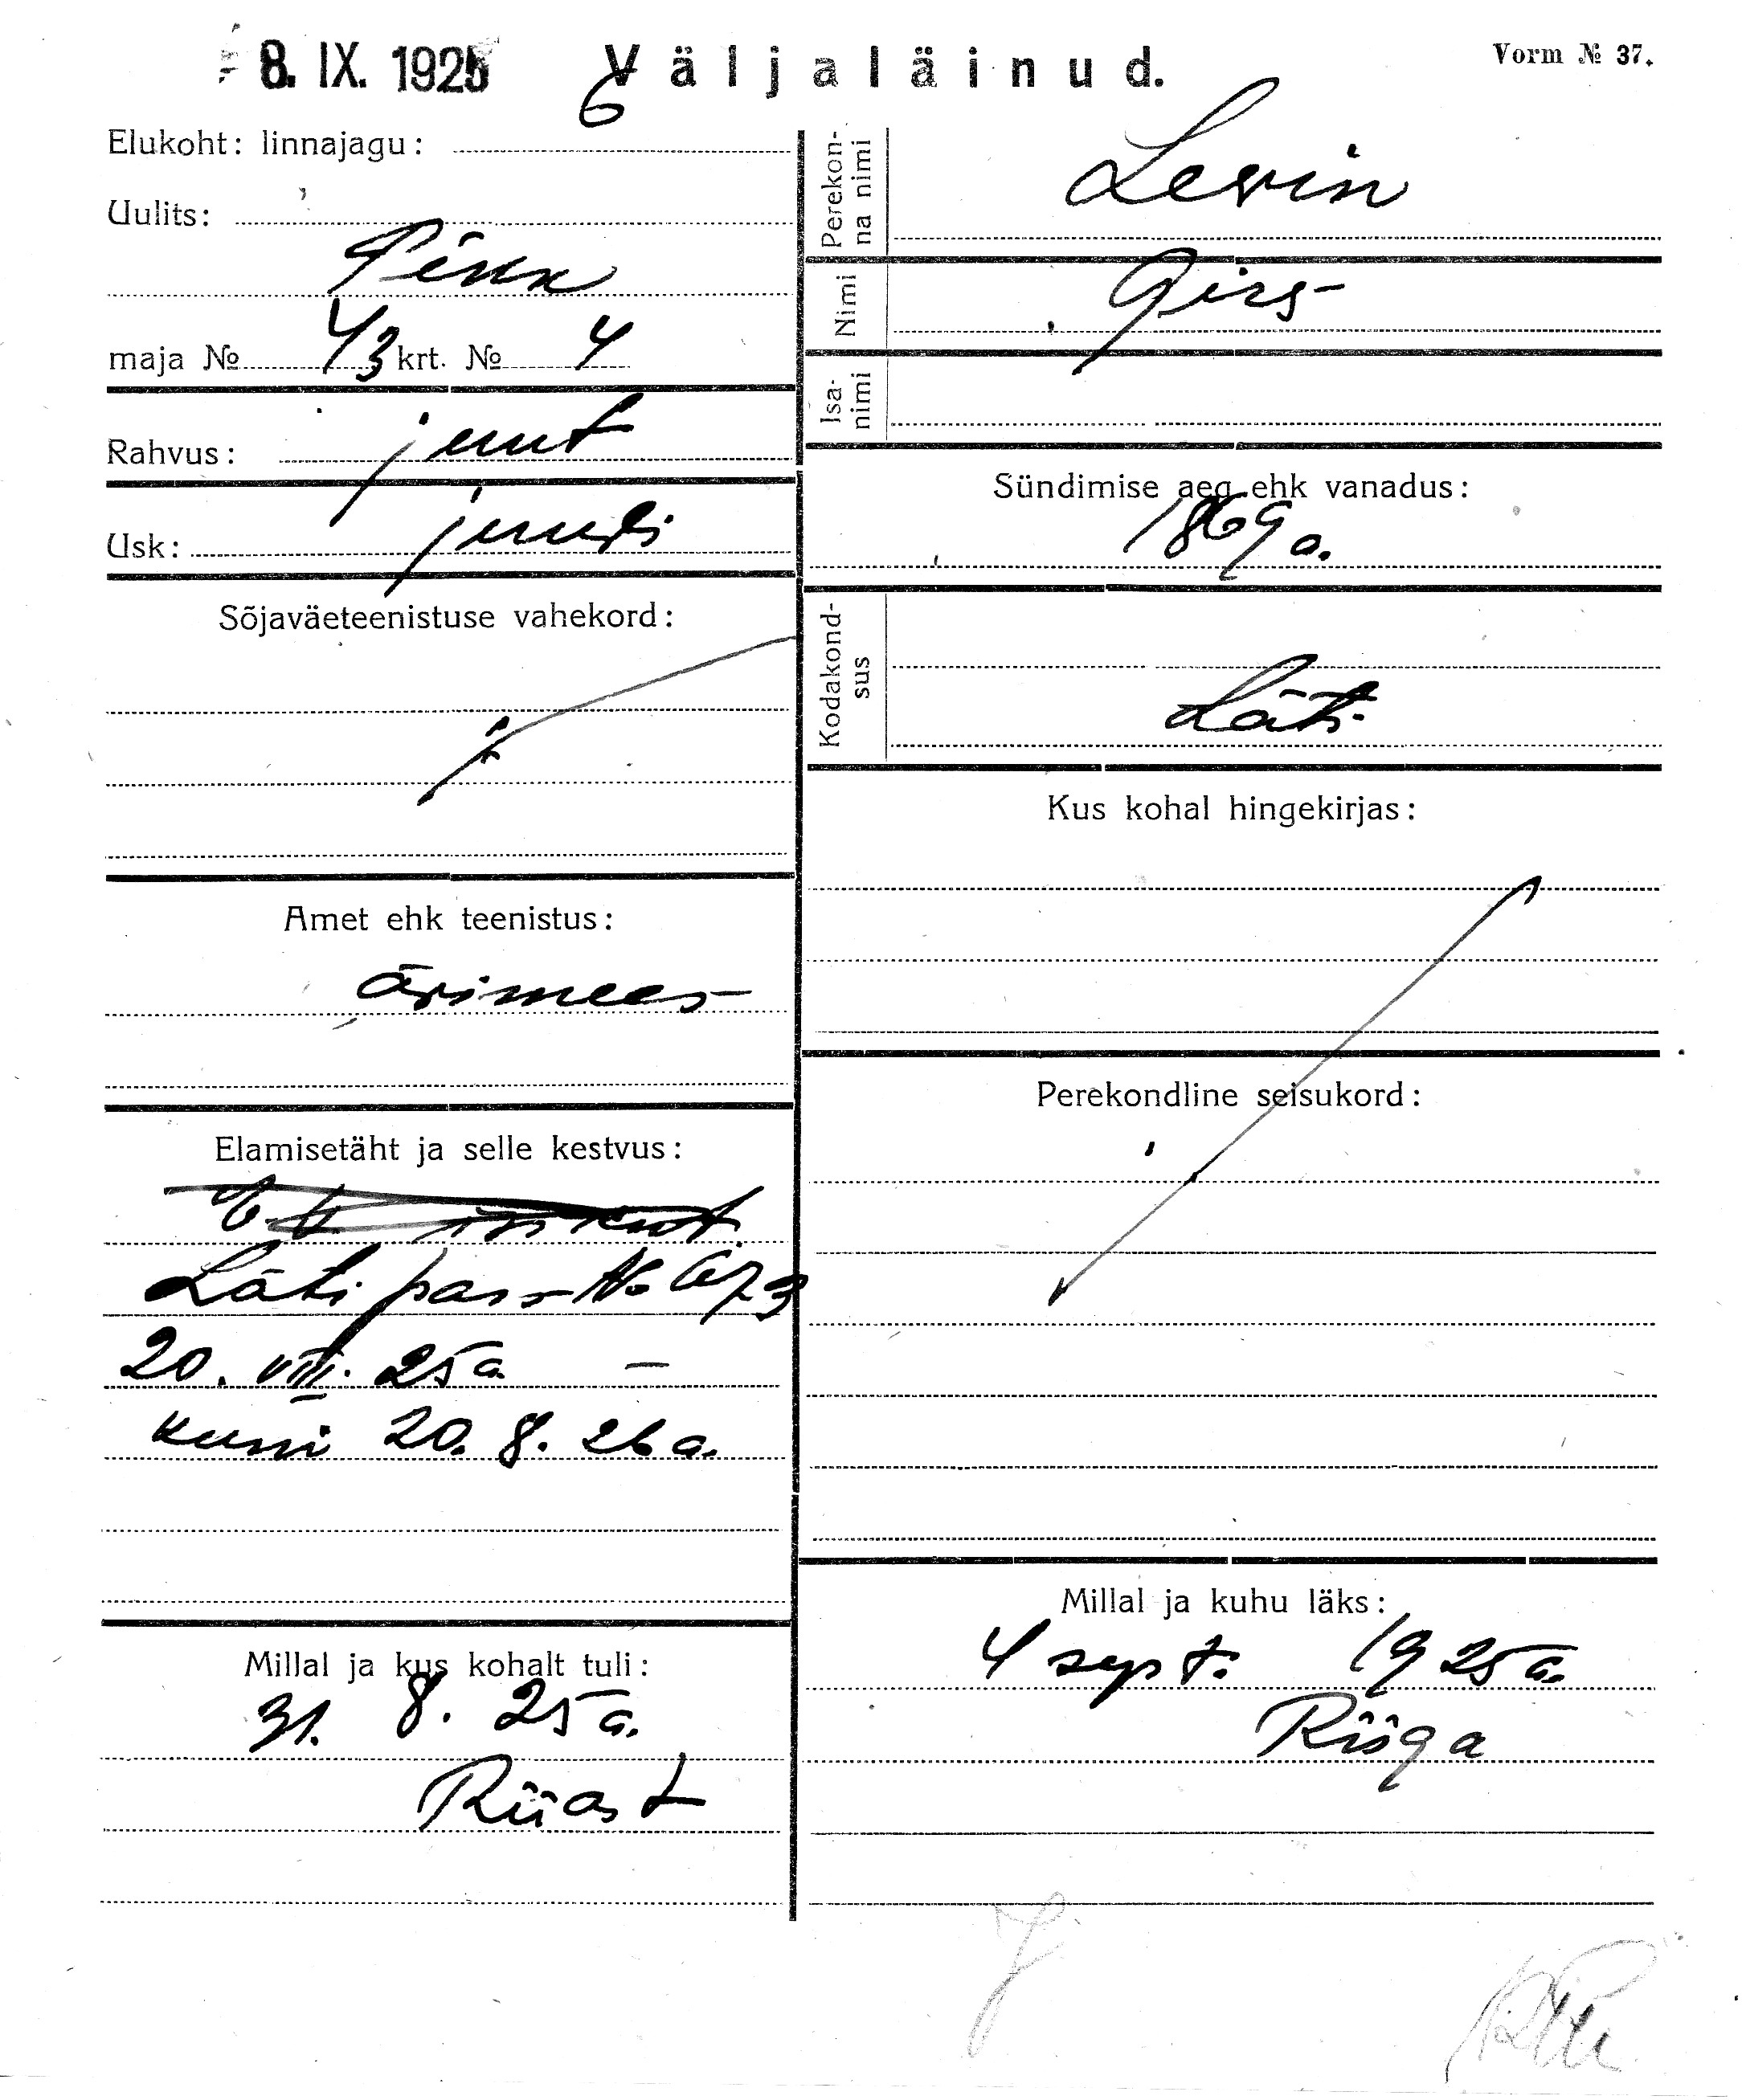 8. IX. 1925
Väljaläinud.
Vorm № 37.
Elukoht: linnajagu:
6
Uulits:
Pikk
maja № 43 krt. № 4
Rahvus: juut
Usk: juudi
Sõjaväeteenistuse vahekord:
Amet ehk teenistus:
ärimees
Elamisetäht ja selle kestvus:
Läti pass No 673
20. VIII. 25 a. —
kuni 20. 8. 26 a.
Millal ja kus kohalt tuli:
31. 8. 25 a.
Riiast
Perekon-
na nimi
Levin
Nimi
Girs
Isa-
nimi
Sündimise aeg ehk vanadus:
1869 a.
Kodakond-
sus
Läti
Kus kohal hingekirjas:
Perekondline seisukord:
Millal ja kuhu läks:
4 sept. 1925 a.
Riiga